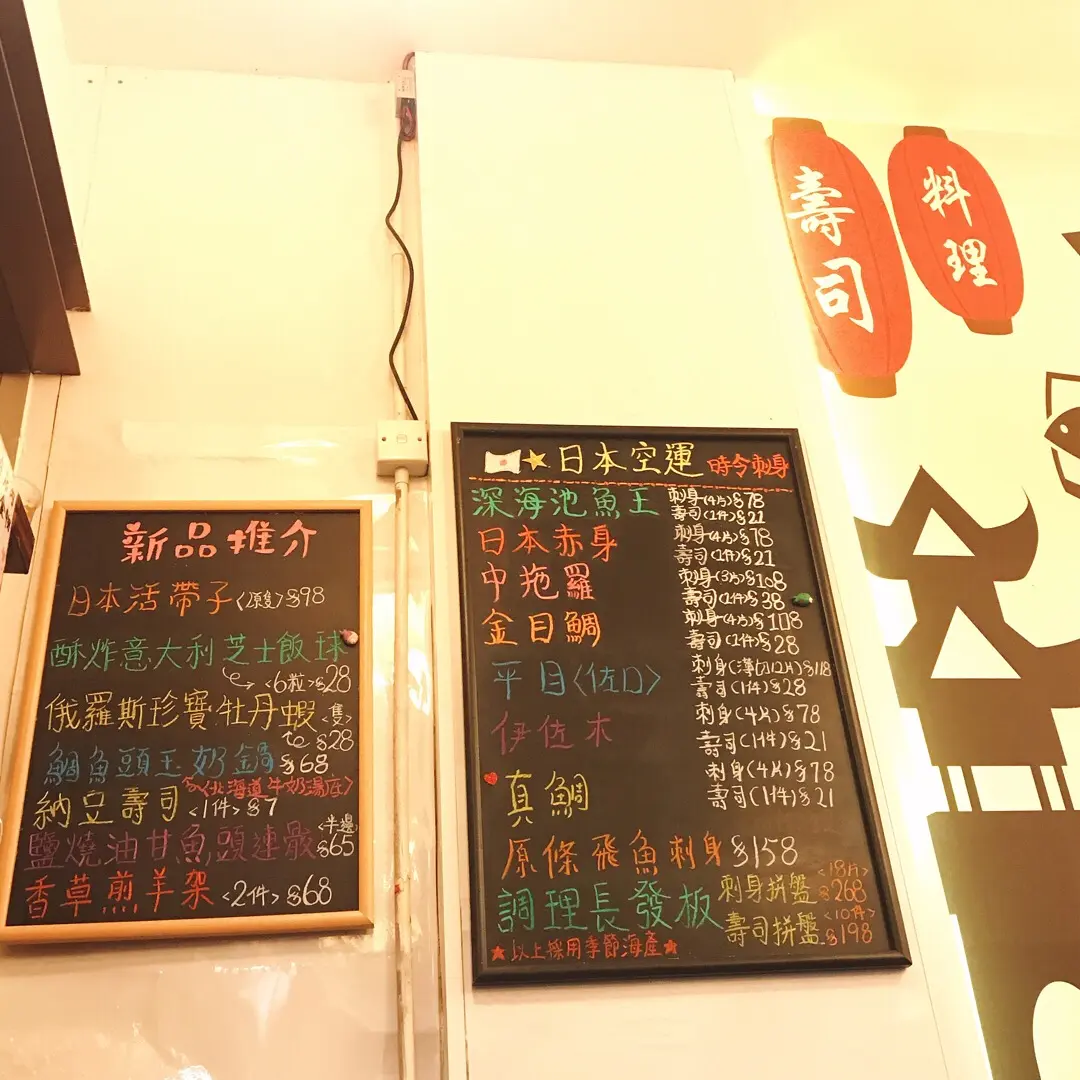 壽司
料理
新品推介
日本活帶子<原隻>$98
酥炸意大利芝士飯球
<6粒>$28
俄羅斯珍寶牡丹蝦<隻>
$28
鯛魚頭玉奶鍋$68
<北海道牛奶湯底>
納豆壽司<1件>$7
鹽燒油甘魚頭連鮫<半邊>$65
香草煎羊架<2件>$68
★日本空運 時令刺身
深海池魚王 刺身(4片)$78
壽司(1件)$21
日本赤身 刺身(4片)$78
壽司(1件)$21
中拖羅 刺身(3片)$108
壽司(1件)$38
金目鯛 刺身(4片)$108
壽司(1件)$28
平目<左口> 刺身(薄切12片)$118
壽司(1件)$28
伊佐木 刺身(4片)$78
壽司(1件)$21
真鯛 刺身(4片)$78
壽司(1件)$21
原條飛魚刺身$158
調理長發板 刺身拼盤<18片>$268
壽司拼盤<10件>$198
★以上採用季節海產★